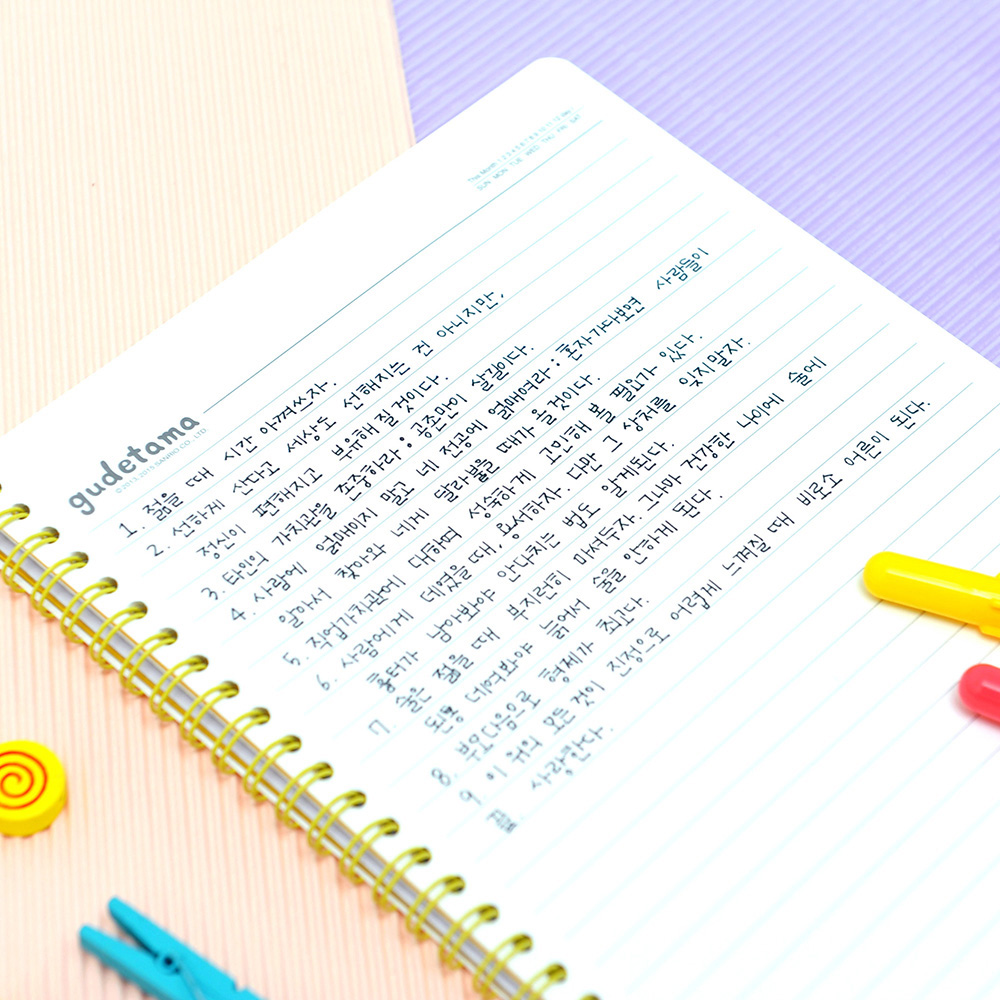 This Month 1 2 3 4 5 6 7 8 9 10 11 12 day
SUN MON TUE WED THU FRI SAT
gudetama
©2013, 2015 SANRIO CO., LTD.
1. 젊을 때 시간 아껴쓰자.
2. 선하게 산다고 세상도 선해지는 건 아니지만,
정신이 편해지고 부유해질 것이다.
3. 타인의 가치관을 존중하라 : 공존만이 살길이다.
4. 사람에 얽매이지 말고 네 전공에 얽매여라 : 혼자가다보면 사람들이
알아서 찾아와 네게 달라붙을 때가 올것이다.
5. 직업가치관에 대하여 성숙하게 고민해 볼 필요가 있다.
6. 사랑에게 데였을 때, 용서하자. 다만 그 상처를 잊지말자.
흉터가 남아봐야 안다치는 법도 알게된다.
7 술은 젊을 때 부지런히 마셔두자. 그나마 건강한 나이에 술에
된통 데여봐야 늙어서 술을 안하게 된다.
8. 부모다음으로 형제가 최고다.
9 이 위의 모든 것이 진정으로 어렵게 느껴질 때 비로소 어른이 된다.
사랑한다.